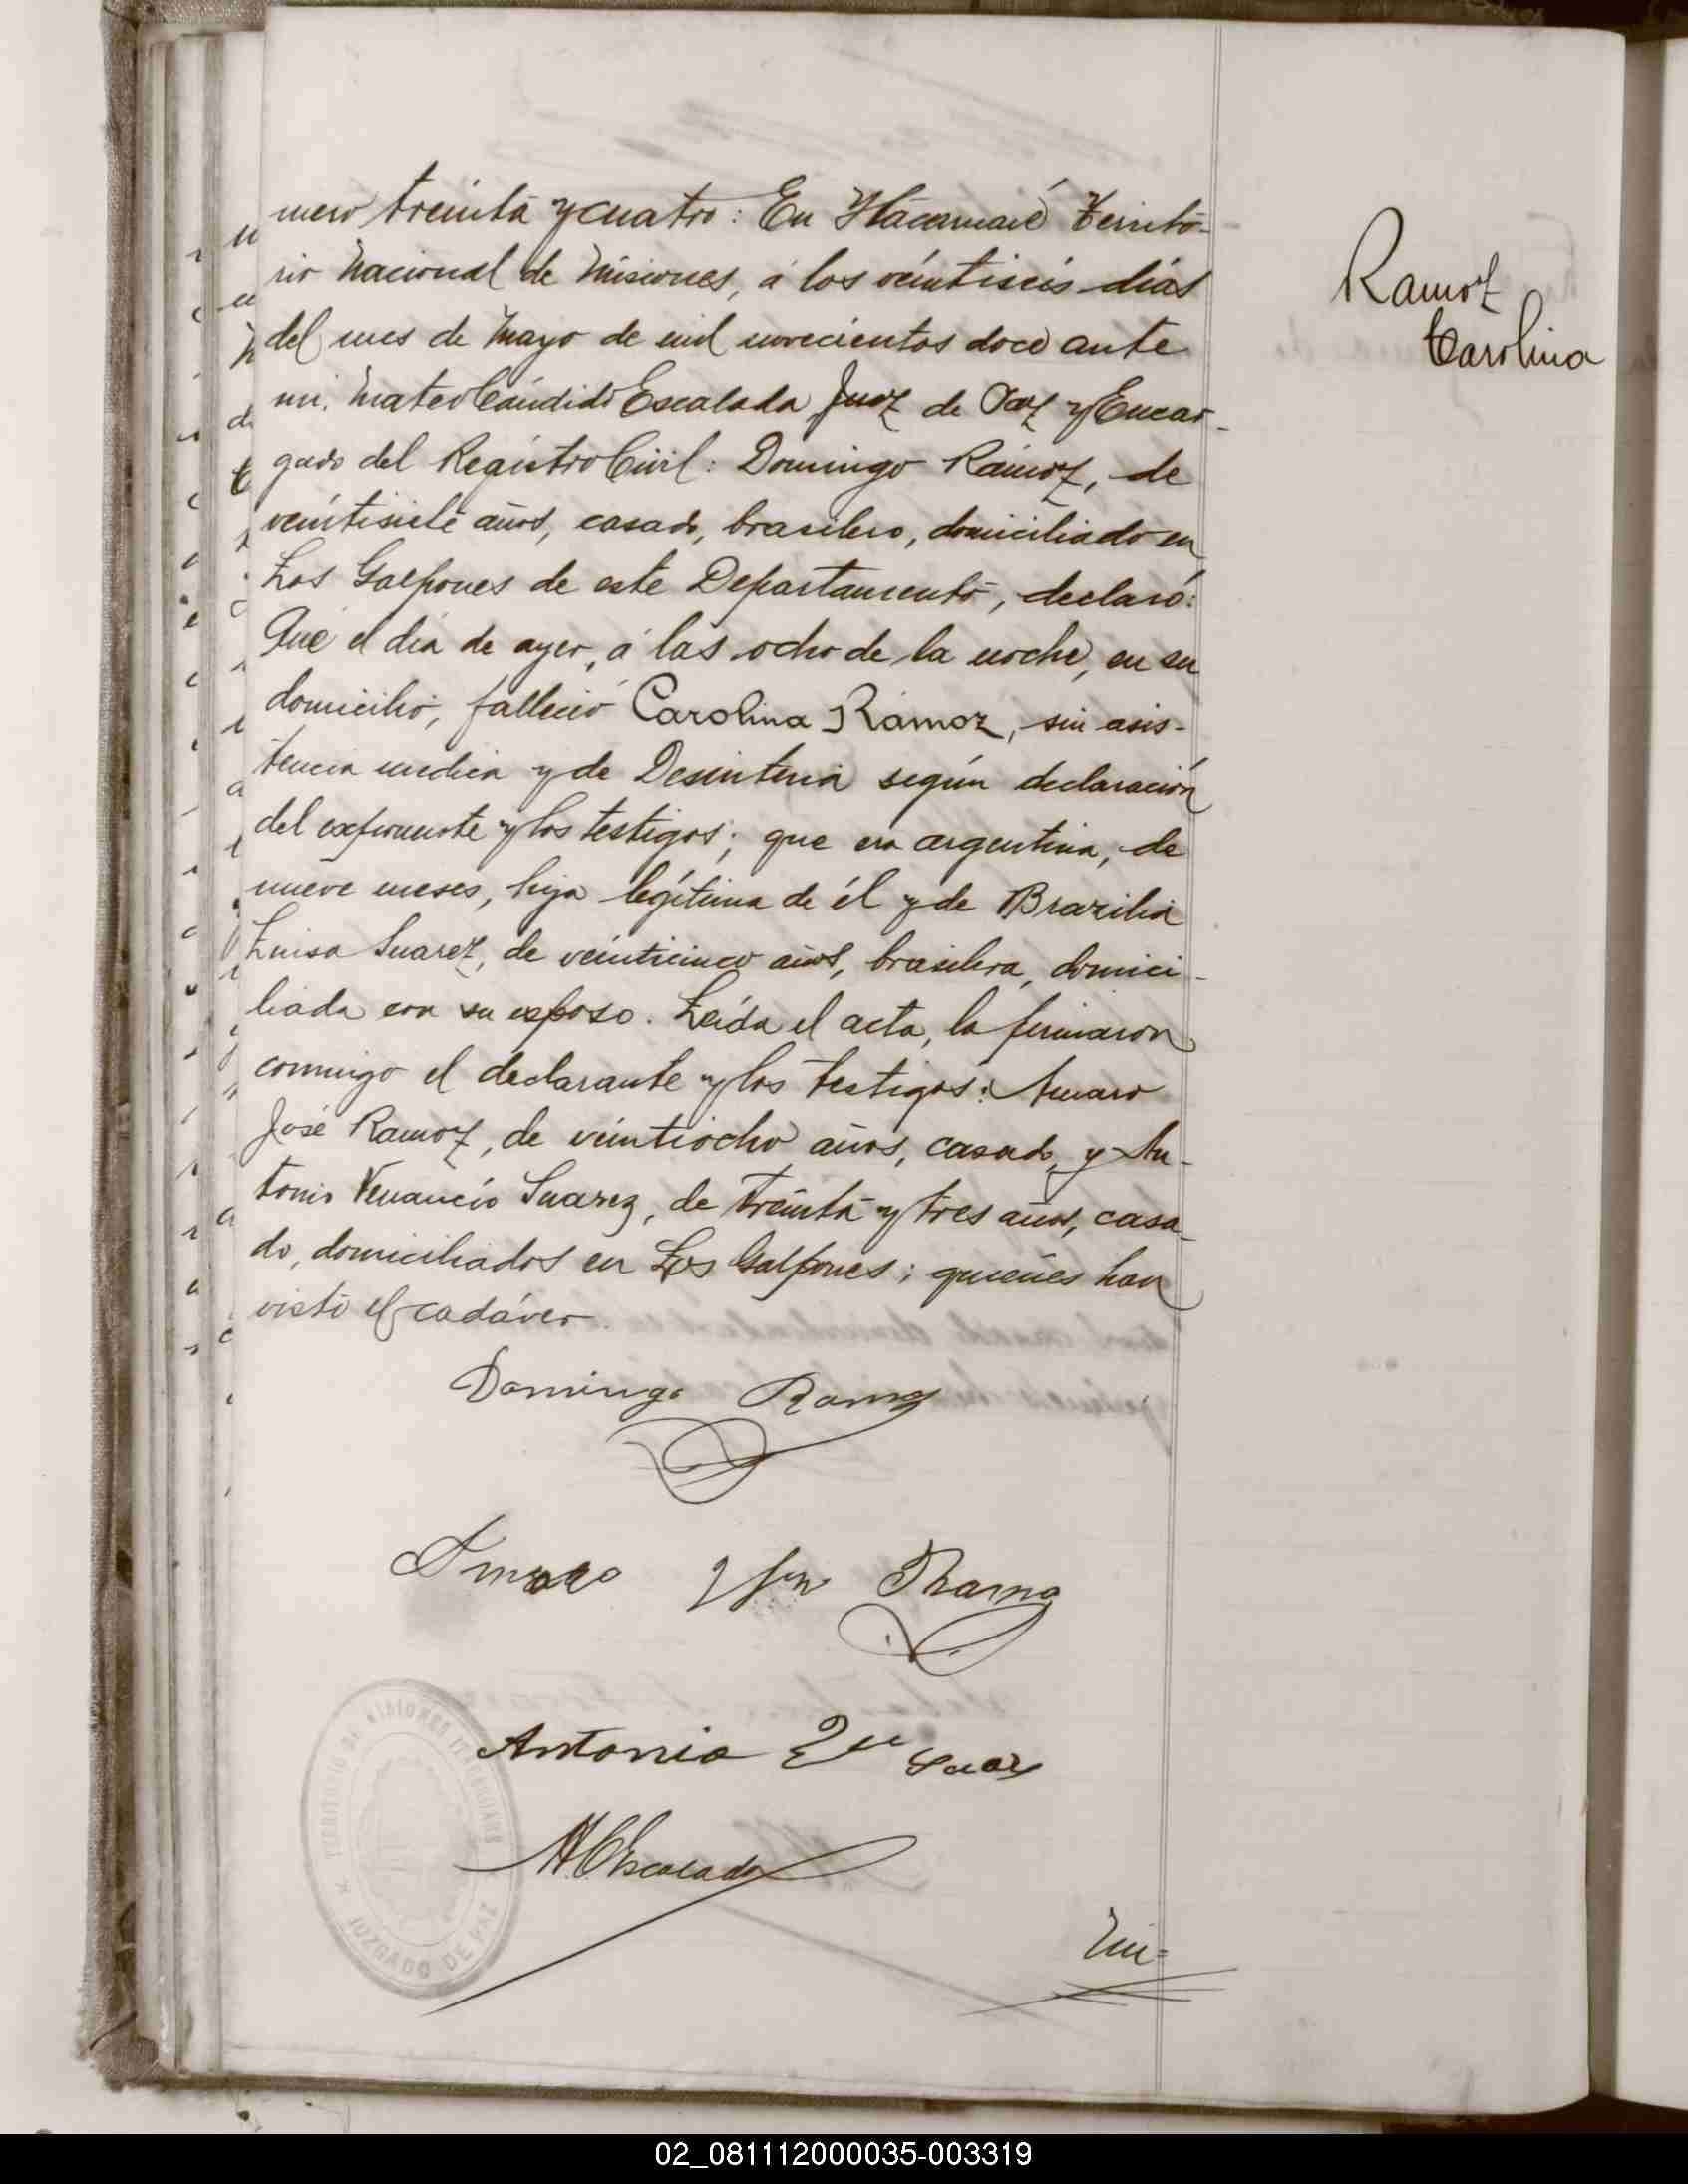 mero treinta y cuatro: En Itacaruaré Territo-
rio Nacional de Misiones, á los veintiseis dias
del mes de Mayo de mil novecientos doce ante
mi, Mateo Cándido Escalada Juez de Paz y Encar-
gado del Registro Civil: Domingo Ramoz, de
veintisiete años, casado, brasilero, domiciliado en
Los Galpones de este Departamento, declaró:
Que el dia de ayer, á las ocho de la noche, en su
domicilio, falleció Carolina Ramoz, sin asis-
tencia medica y de Desinteria según declaración
del exponente y los testigos; que era argentina, de
nueve meses, hija legítima de él y de Brazilia
Luisa Suarez, de veinticinco años, brasilera, domici-
liada con su esposo. Leida el acta, la firmaron
conmigo el declarante y los testigos: Amaro
José Ramoz, de veintiocho años, casado, y An-
tonio Venancio Suarez, de treinta y tres años, casa-
do, domiciliados en Los Galpones; quienes han
visto el cadáver.
Ramoz
Carolina
Domingo Ramoz
Amaro Ramoz
Antonio
MCEscalada
TERRITORIO DE MISIONES
JUZGADO DE PAZ
02_081112000035-003319